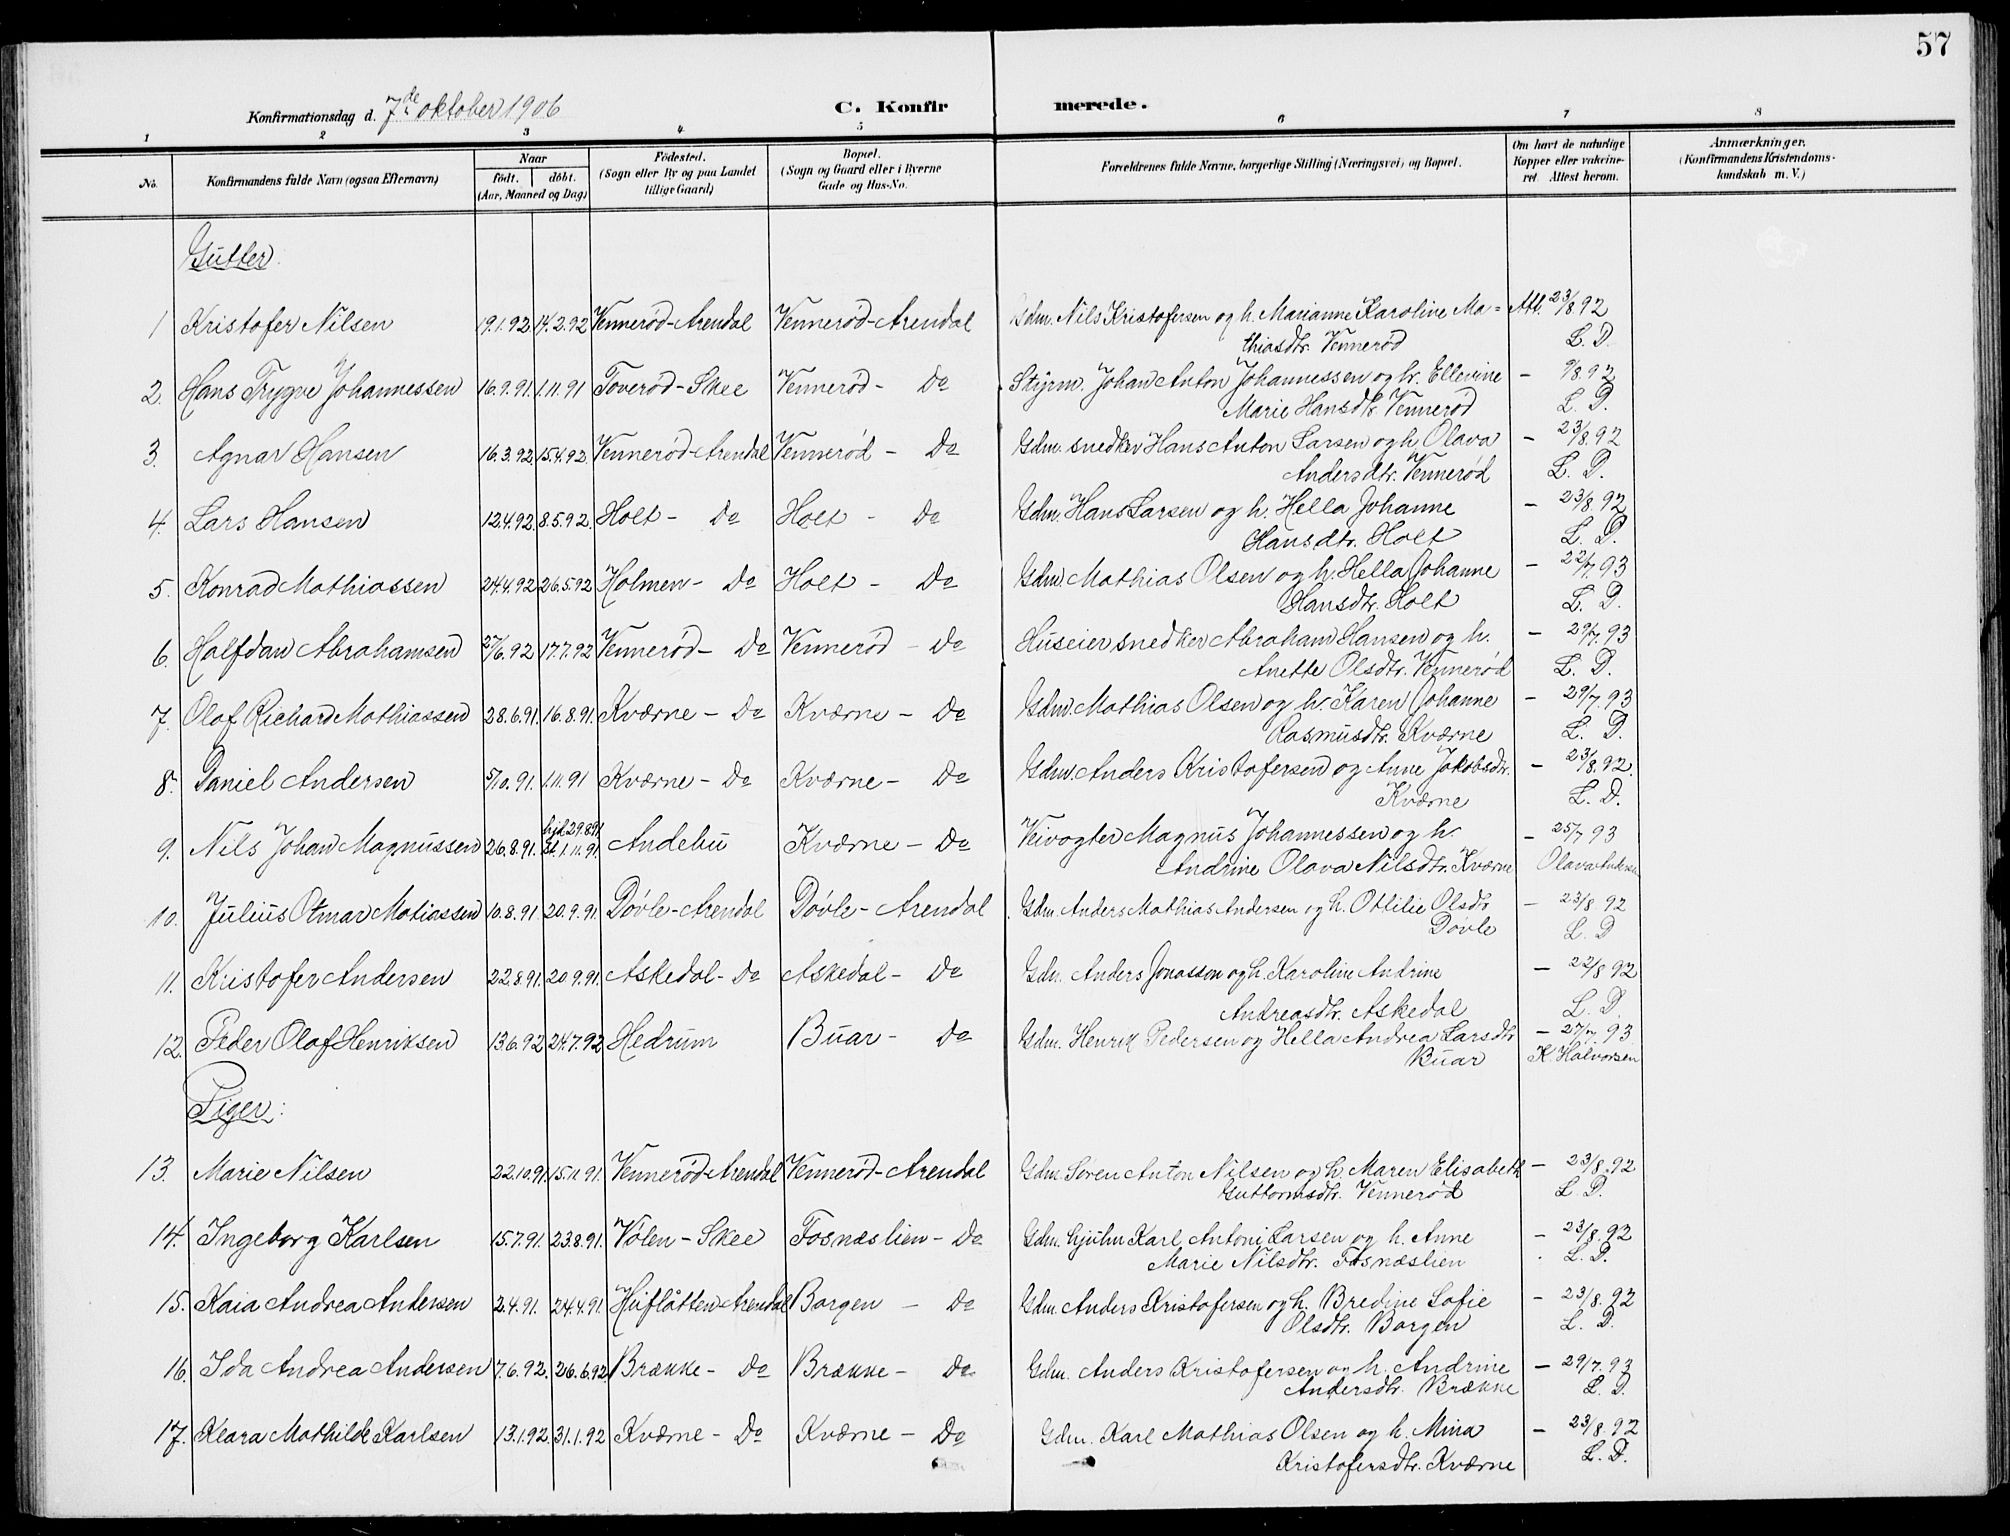 57
Konfirmationsdag d. 7de oktober 1906 C. Konfir merede.
1 2 3 4 5 6 7 8
No. Konfirmandens fulde Navn (ogsaa Efternavn) Naar født. døbt. (Aar, Maaned og Dag) Fødested. (Sogn eller By og paa Landet tillige Gaard) Bopæl. (Sogn og Gaard eller i Byerne Gade og Hus-No. Forældrenes fulde Navne, borgerlige Stilling (Næringsvei) og Bopæl. Om havt de naturlige Kopper eller vakcineret. Attest herom. Anmærkninger. (Konfirmandens Kristendomskundskab m. V.)
Gutter
1 Kristofer Nilsen 19.1.92 14.2.92 Vennerød-Arendal Vennerød-Arendal Gdm. Nils Kristofersen og h. Marianne Karoline Ma= Att. 23/8.92
thiasdtr. Vennerød L. D.
2. Hans Trygve Johannessen 16.9.91. 1.11.91 Toverød-Skee Vennerød - Do Styrm. Johan Anton Johannessen og h. Ellevine - 9/8.92
Marie Hansdtr. Vennerød L. D.
3. Agnar Hansen 16.3.92. 15.4.92. Vennerød-Arendal Vennerød - Do Gdm. snedker Hans Anton Larsen og h. Olava - 23/8.92
Andersdtr. Vennerød L. D.
4. Lars Hansen 12.4.92. 8.5.92. Holt - Do Holt - Do Gdm. Hans Larsen og h. Hella Johanne - 23/8.92
Hansdtr. Holt L. D.
5. Konrad Mathiassen 24.4.92 26.5.92 Holmen - Do Holt - Do Gdm Mathias Olsen og h. Hella Johanne - 22/7.93
Hansdtr. Holt L. D.
6. Halfdan Abrahamsen 27/6.92 17.7.92 Vennerød - Do Vennerød - Do Huseier snedker Abraham Hansen og h. - 29/7.93
Anette Olsdtr. Vennerød L. D.
7. Olaf Richard Mathiassen 28.6.91. 16.8.91. Kværne - Do Kværne - Do Gdm. Mathias Olsen og h. Karen Johanne - 29/7.93
Rasmusdtr. Kværne L. D.
8. Daniel Andersen 5/10.91. 1.11.91 Kværne - Do Kværne - Do Gdm. Anders Kristofersen og Anne Jakobsdtr. - 23/8.92.
Kværne L. D.
9. Nils Johan Magnussen 26.8.91. hjd. 29.8.91. st. 1.11.91. Andebu Kværne - Do Veivogter Magnus Johannessen og h. - 25/7 93
Andrine Olava Nilsdtr. Kværne Olava Andersen
10. Julius Otmar Matiassen 10.8.91. 20.9.91. Døvle-Arendal Døvle-Arendal Gdm. Anders Mathias Andersen og h. Otlilie Olsdtr - 23/8 92
Døvle L. D
11. Kristofer Andersen 22.8.91. 20.9.91. Askedal - Do Askedal - Do Gdm. Anders Jonasson og h. Karoline Andrine - 22/8 92
Andreasdtr. Askedal L. D.
12. Peder Olaf Henriksen 13.6.92 24.7.92 Hedrum Buar - Do Gdm. Henrik Pedersen og Hella Andrea Larsdtr - 27/7.93
Buar K. Halvorsen
Piger:
13. Marie Nilsen 22.10.91. 15.11.91. Vennerød-Arendal Vennerød-Arendal Gdm. Søren Anton Nilsen og h. Maren Elisabeth - 23/8.92
Guttormsdtr. Vennerød L. D.
14. Ingeborg Karlsen 15.7.91. 23.8.91. Vølen - Skee Fosnæslien - Do Gdm. hjulm Karl Antoni Larsen og h. Anne - 23/8.92
Marie Nilsdtr. Fosnæslien L. D.
15. Kaia Andrea Andersen 2.4.91. 24.4.91. Huflåtten Arendal Borgen - Do Gdm. Anders Kristofersen og h. Bredine Sofie - 23/8.92
Olsdtr. Borgen L. D.
16. Ida Andrea Andersen 7.6.92. 26.6.92 Brække - Do Brække - Do Gdm. Anders Kristofersen og h. Andrine - 29/7.93
Andersdtr. Brække L. D.
17. Klara Mathilde Karlsen 13.1.92. 31.1.92 Kværne - Do Kværne - Do Gdm. Karl Mathias Olsen og h. Mina - 23/8.92
Kristofersdtr. Kværne L. D.